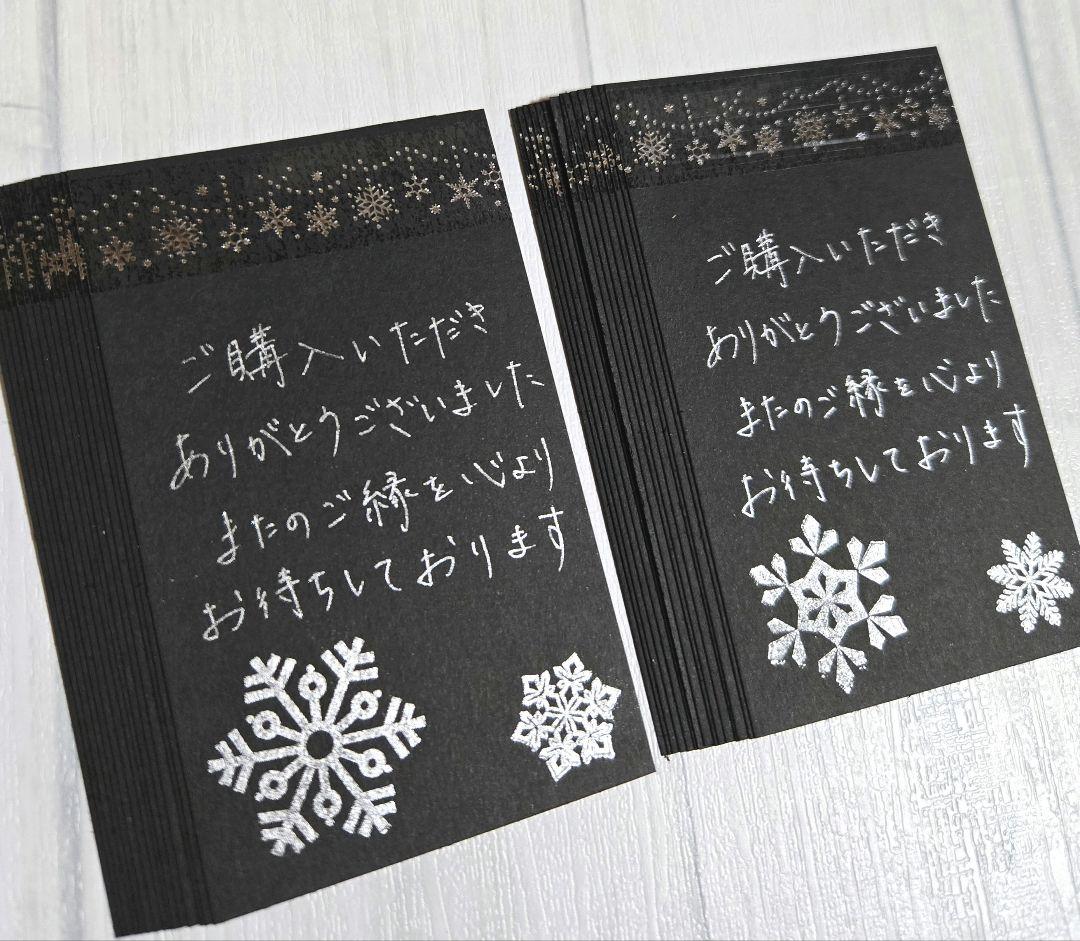 ご購入いただき
ありがとうございました
またのご縁を心より
お待ちしております
ご購入いただき
ありがとうございました
またのご縁を心より
お待ちしております